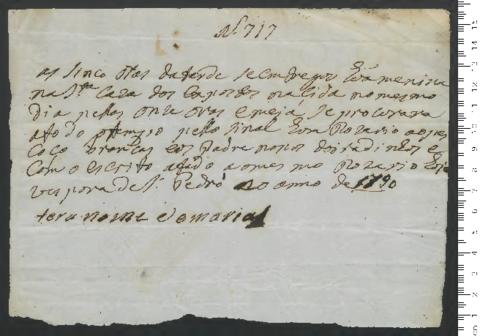 Nº 717
as sinco oras da tarde se entregou esta menina
na Sta Caza dos Expostos nasida no mesmo
dia pellas onze oras e meja, se procurara
a todo o tempo pello sinal hum Rozario a o pes
coço brancas e os Padre nosos
com o escrito atado a o mesmo Rozario
vespora de S. Pedro ao anno de 1790
tera nome de maria